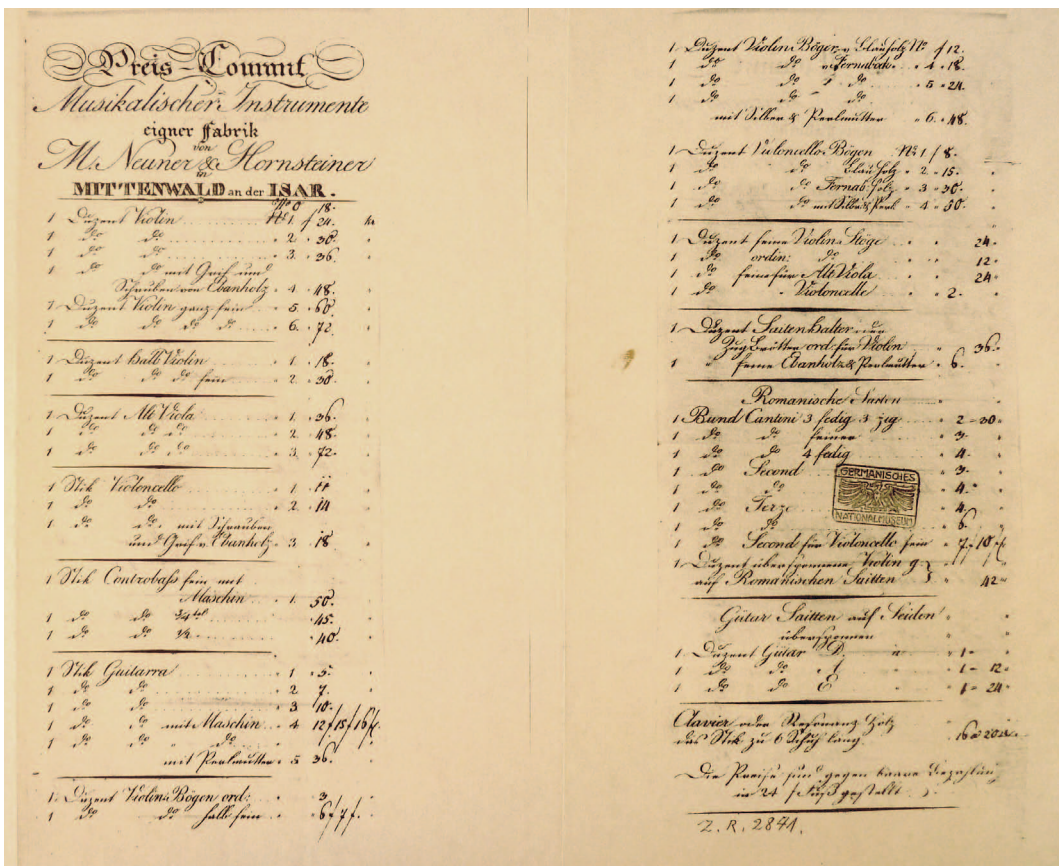 Preis-Courant
Musikalischer Instrumente
eigner Fabrik
von
M. Neuner & Hornsteiner
in
MITTENWALD an der ISAR.
No 0 18.
1 Duzent Violin No 1. f 24.
1 do do 2. 30.
1 do do 3. 36.
1 do do mit Grif und
Schrauben von Ebanholz 4. 48.
1 Duzent Violin ganz fein 5. 60.
1 do do do do 6. 72.
1 Duzent Halb Violin 1. 18.
1 do do do fein 2. 30.
1 Duzent Alt Viola 1. 36.
1 do do do 2. 48.
1 do do do 3. 72.
1 Stik Violoncello 1. 11
1 do do 2. 14
1 do do mit Schrauben
und Grif v. Ebanholz 3. 18.
1 Stik Controbass fein mit
Maschin 1. 50.
1 do do 3/4 45.
1 do do 1/2 40.
1 Stik Guitarra 1. 5.
1 do do 2 7.
1 do do 3 10.
1 do do mit Maschin 4 12f 15f 16f
1 do do
mit Perlmutter 5 36.
1 Duzent Violin Bögen ord: 3
1 do do halb fein 6f 7f.
1 Duzent Violin Bögen v. Blauholz No f 12.
1 do do v. Fernabock 4. 18.
1 do do do 5. 24.
1 do do do
mit Silber & Perlmutter 6. 48.
1 Duzent Violoncello Bögen No 1 f 8.
1 do do Blau holz 2. 15.
1 do do Fernab. holz 3. 30.
1 do do mit Silb & Perl. 4. 50.
1 Duzent feine Violin Stege 24.
1 do ordin: do 12.
1 do feine für Alt Viola 24
1 do Violoncelle 2.
1 Duzent Saiten halter
ord. für Violin 36.
1 feine Ebanholz & Perlmutter 6.
Romanische Saiten
1 Bund Cantini 3 fedig 3 zig 2 - 30
1 do do feiner 3.
1 do do 4 fedig 4.
1 do Second 3.
1 do do 4.
1 do Terze 4.
1 do do 6.
1 do Second für Violoncello fein 7f 10f
1 Duzent übersponnene Violin g.
auf Romanischen Saitten 42
GERMANISCHES
NATIONALMUSEUM
Gütar Saitten auf Seiden
übersponnen
1 Duzent Gütar D. 1 -
1 do do 1 - 12
1 do do E 1 - 24
Clavier oder Resonanz Holz
das Stik zu 6 Schuh lang. 16 a 20
Die Preise sind gegen baare Bezahlung
in 24 f Fuß gestellt.
Z. R. 2841.